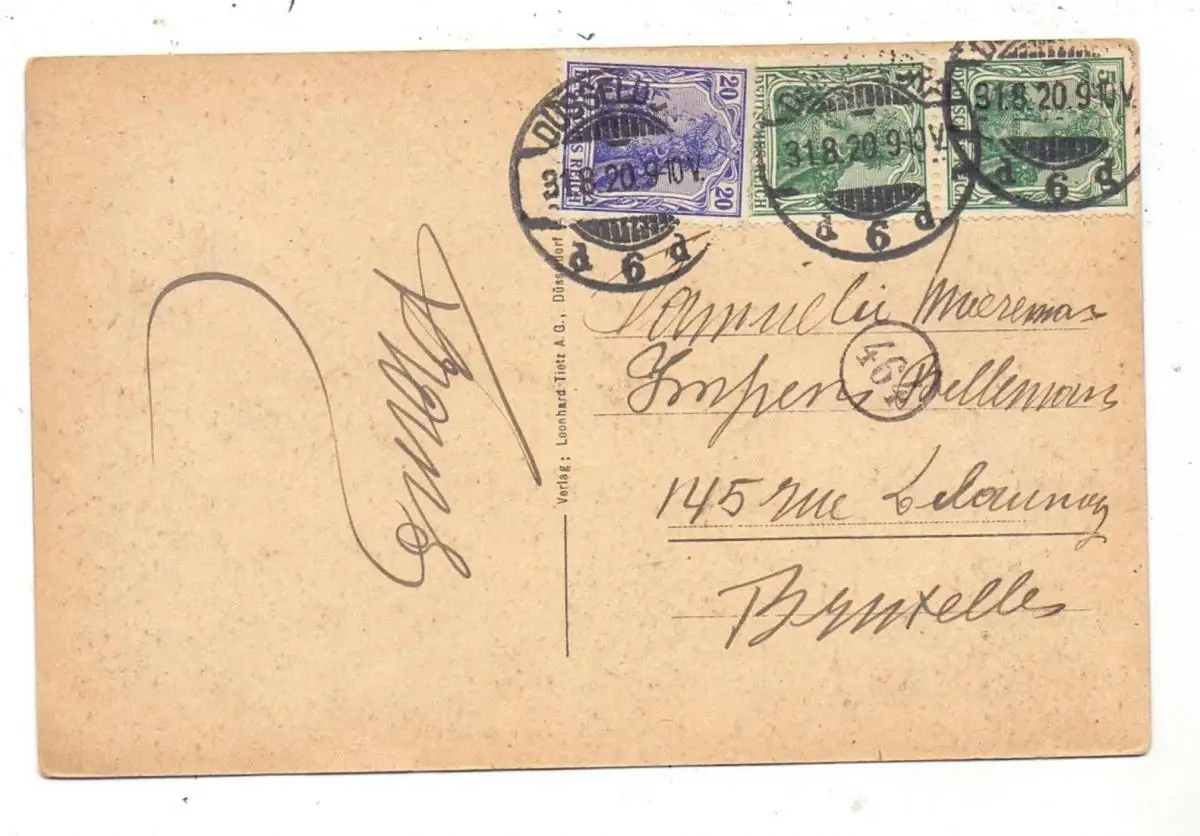 20 20
DEUTSCHES REICH
DEUTSCHES REICH
5
DEUTSCHES REICH
DÜSSELD
31.8.20.9-10V.
31.8.20.9-10V.
31.8.20.9-10V.
d 6 d
d 6 d
d 6 d
Verlag: Leonhard Tietz A.G., Düsseldorf
Impens Bellemans
464
145 rue Delaunoy
Bruxelles